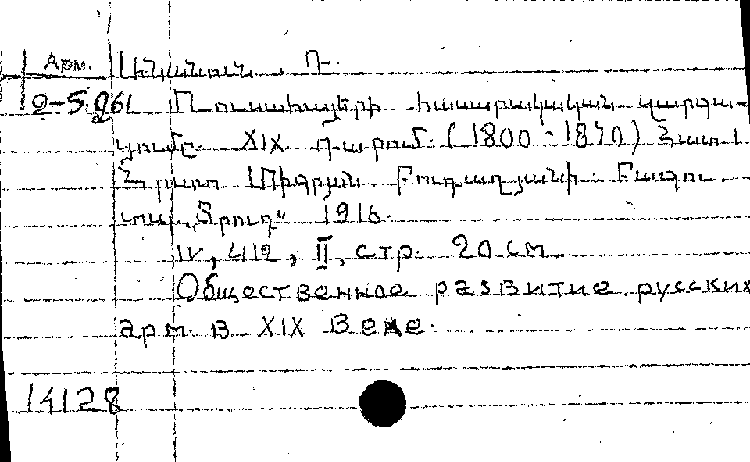 Арм. Անանուն. Ռ.
0-5.961 Ռուսահայերի հասարակական զարգա-
ցումը XIX դարում. (1800-1870) Հատ. I
Հրատ Տիգրան Բաքու
տպ. „Տրուդ“ 1916.
IV, 412, II, стр. 20 см
Общественное развитие русских
арм. в XIX веке.
14128